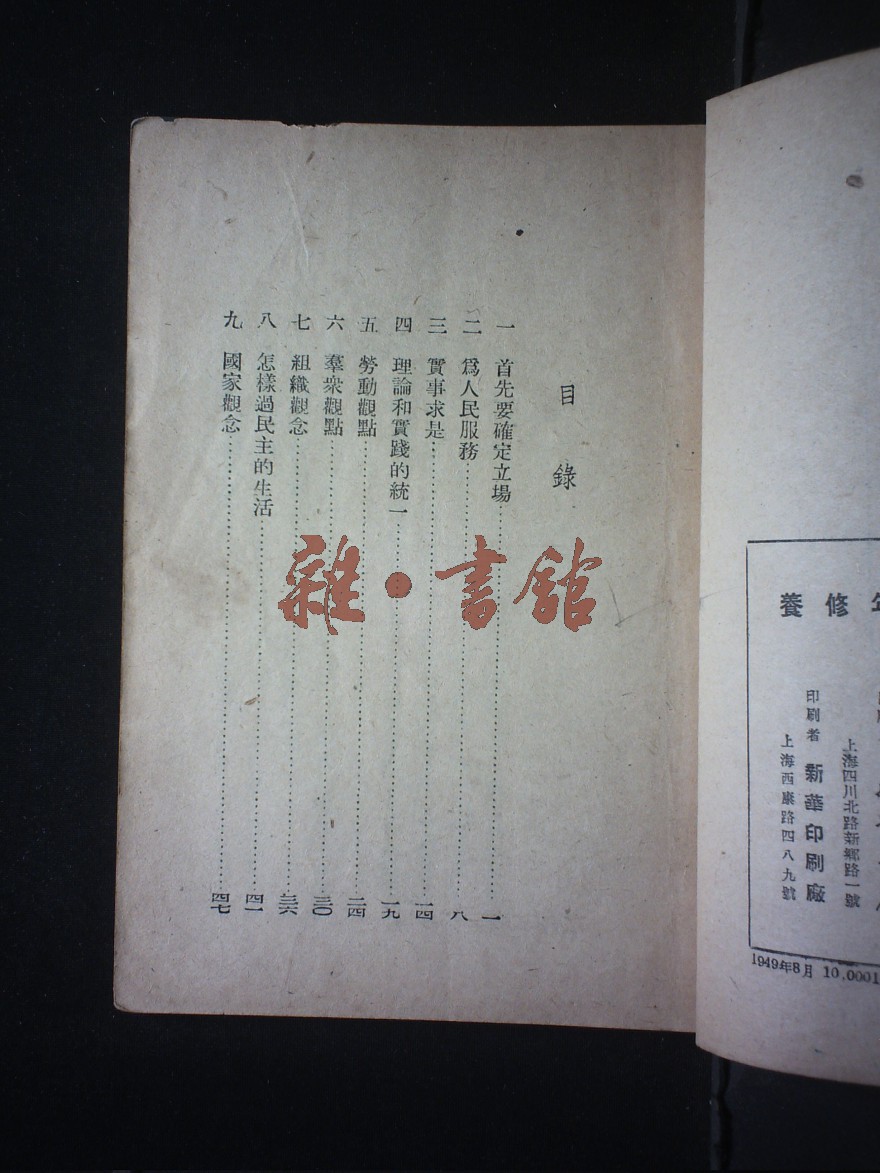 養修
上海四川北路新鄉路一號
印刷者 新華印刷廠
上海西康路四八九號
1949年8月 10,0001
目錄
一 首先要確定立場 一
二 爲人民服務 八
三 實事求是 一四
四 理論和實踐的統一 一九
五 勞動觀點 二四
六 羣衆觀點 三〇
七 組織觀念 三六
八 怎樣過民主的生活 四一
九 國家觀念 四七
雜·書館